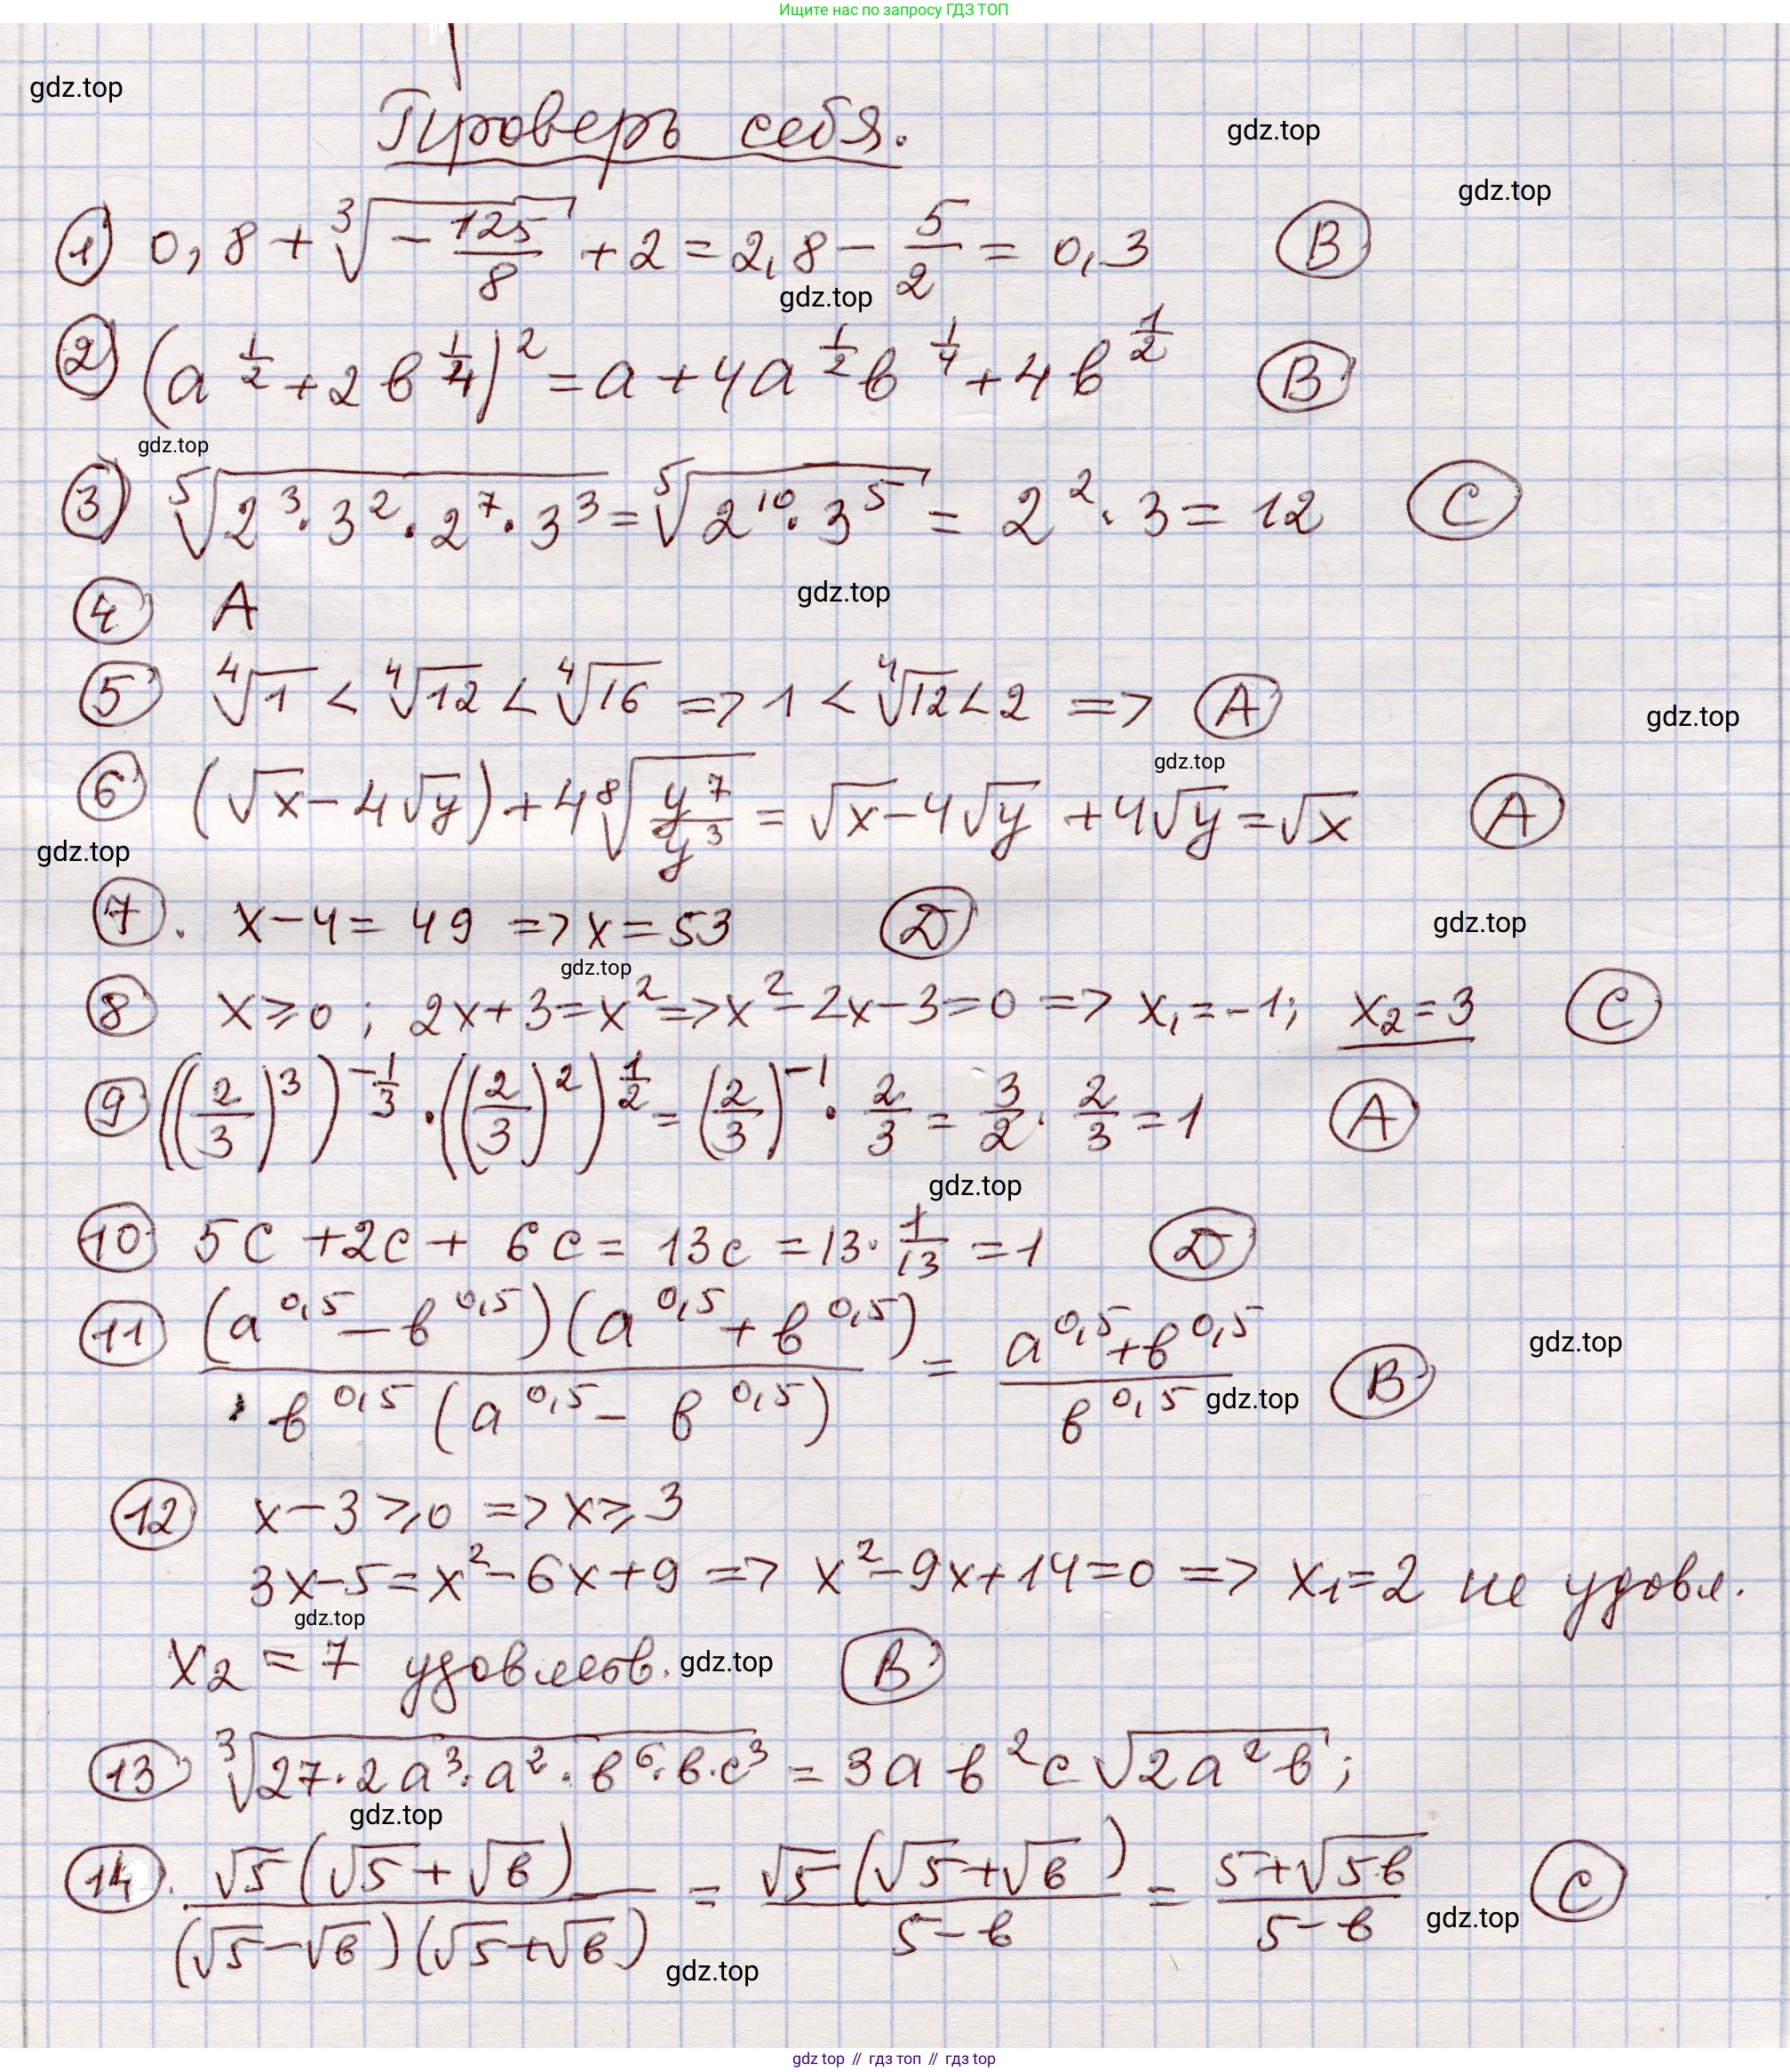 Ищите нас по запросу ГДЗ ТОП
gdz.top
Проверь себя.
gdz.top
gdz.top
1) 0,8 + ∛(-125/8) + 2 = 2,8 - 5/2 = 0,3 B
gdz.top
2) (a^(1/2) + 2b^(1/4))^2 = a + 4a^(1/2)b^(1/4) + 4b^(1/2) B
gdz.top
3) ⁵√(2^3·3^2·2^7·3^3) = ⁵√(2^10·3^5) = 2^2·3 = 12 C
gdz.top
4 A
5 ⁴√1 < ⁴√12 < ⁴√16 => 1 < ⁴√12 < 2 => A
gdz.top
gdz.top
6 (√x - 4√y) + 4 ⁸√(y^7/y^3) = √x - 4√y + 4√y = √x A
gdz.top
7. x - 4 = 49 => x = 53 D
gdz.top
gdz.top
8 x ⩾ 0; 2x + 3 = x^2 => x^2 - 2x - 3 = 0 => x₁ = -1; x₂ = 3 C
9 ((2/3)^3)^(-1/3) · ((2/3)^2)^(1/2) = (2/3)^(-1) · 2/3 = 3/2 · 2/3 = 1 A
gdz.top
10 5c + 2c + 6c = 13c = 13·1/13 = 1 D
11 (a^0,5 - b^0,5)(a^0,5 + b^0,5) / b^0,5(a^0,5 - b^0,5) = (a^0,5 + b^0,5) / b^0,5 B
gdz.top
gdz.top
12 x - 3 ⩾ 0 => x ⩾ 3
3x - 5 = x^2 - 6x + 9 => x^2 - 9x + 14 = 0 => x₁ = 2 не удовл.
gdz.top
x₂ = 7 удовлетв. gdz.top B
13 ∛(27·2a^3·a^2·b^6·b·c^3) = 3ab^2c√(2a^2b);
gdz.top
14. √5(√5 + √b) / (√5 - √b)(√5 + √b) = √5(√5 + √b) / (5 - b) = (5 + √(5b)) / (5 - b) C
gdz.top
gdz.top
gdz top // гдз топ // гдз top